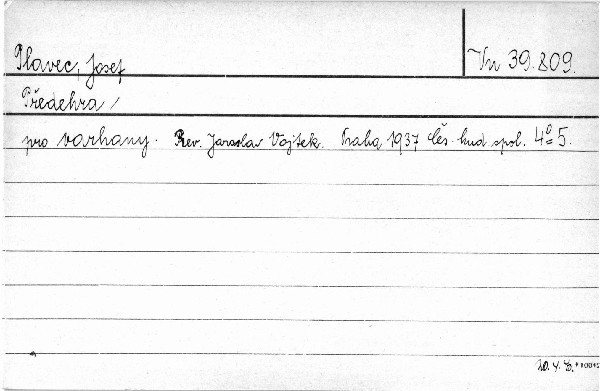 Plavec, Josef
Vn 39.809.
Předehra /
pro varhany. Rev. Jaroslav Vojtek. Praha 1937 Čes. hud. spol. 4° 5.